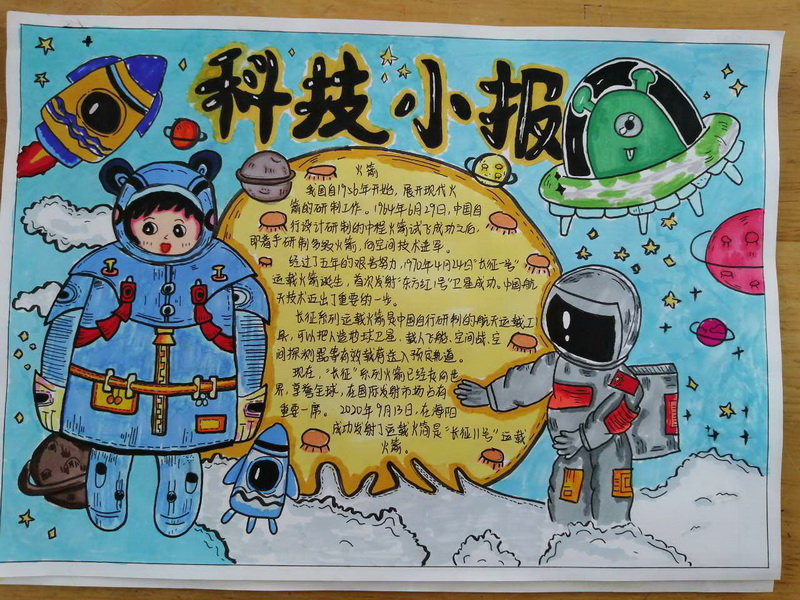 科技小报
火箭
我国自1956年开始，展开现代火
箭的研制工作。1964年6月29日，中国自
行设计研制的中程火箭试飞成功之后，
即着手研制多级火箭，向空间技术进军。
经过了五年的艰苦努力，1970年4月24日"长征一号"
运载火箭诞生，首次发射"东方红1号"卫星成功。中国航
天技术迈出了重要的一步。
长征系列运载火箭是中国自行研制的航天运载工
具，可以把人造地球卫星，载人飞船，空间站，空
间探测器等有效载荷送入预定轨道。
现在，"长征"系列火箭已经走向世
界，享誉全球，在国际发射市场占有
重要一席。2020年9月15日，在海阳
成功发射了运载火箭是"长征11号"运载
火箭。